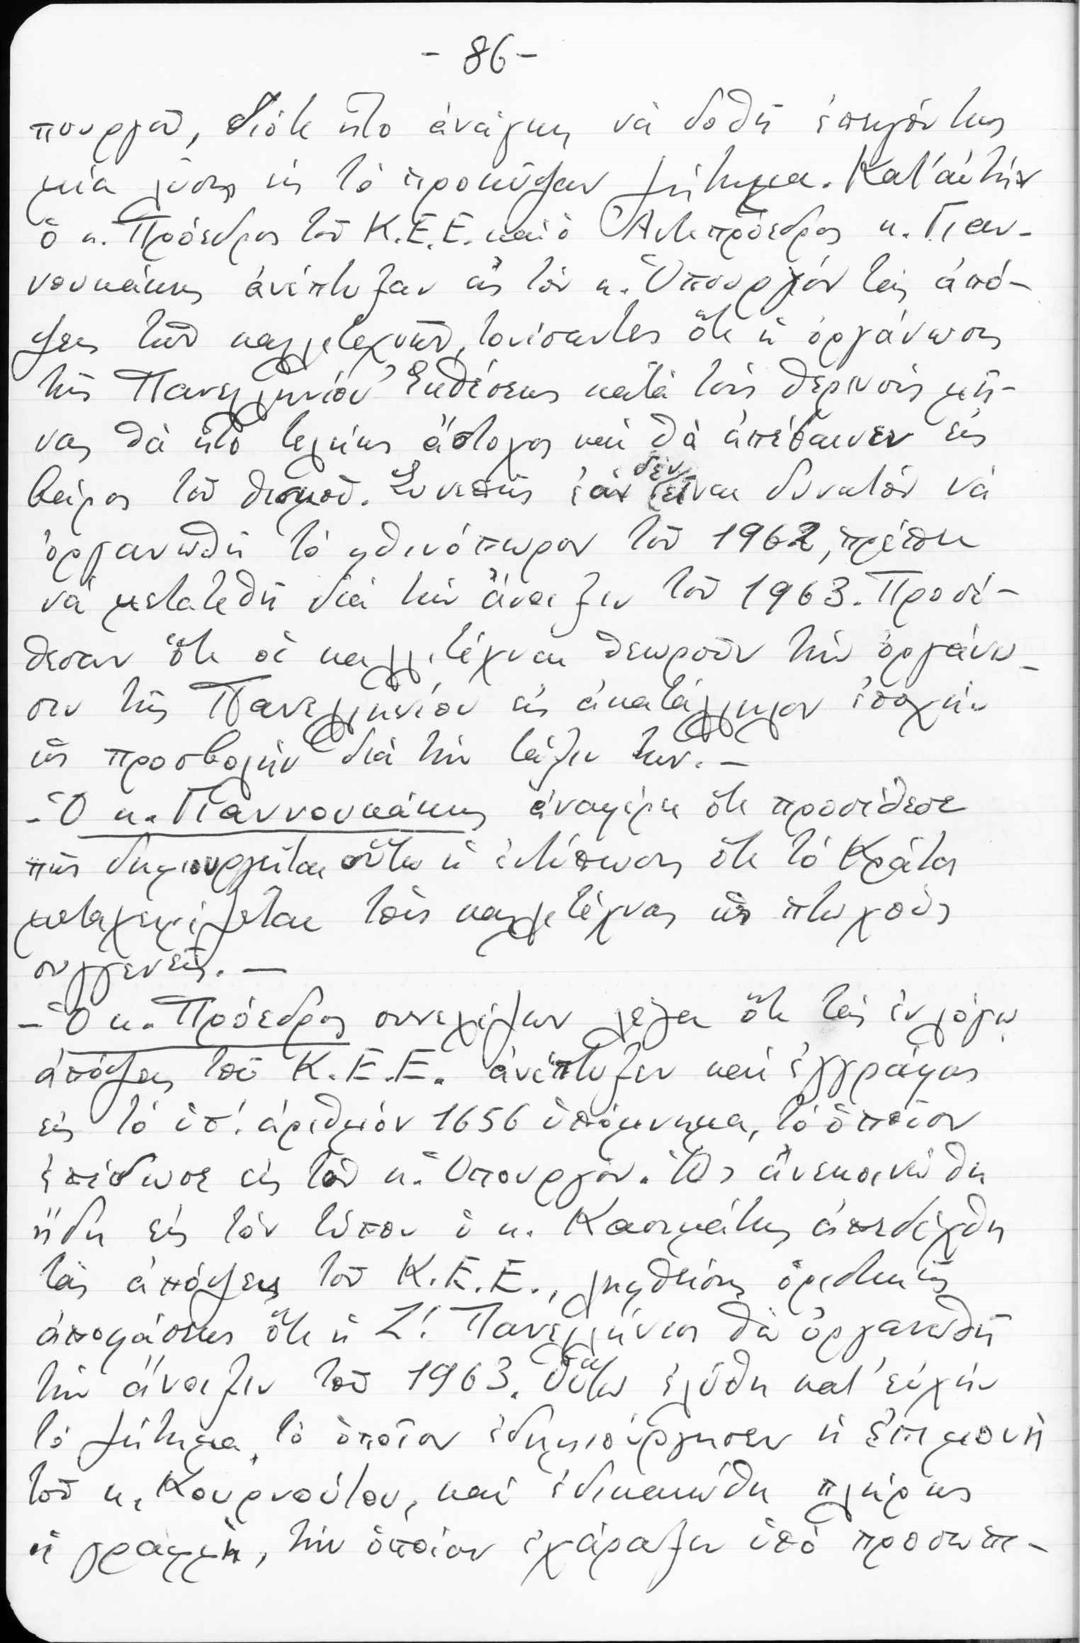 - 86 -
πουργοῦ, διότι ἦτο ἀνάγκη νὰ δοθῇ ἐπειγόντως
μία λύσις εἰς τὸ προκῦψαν ζήτημα. Κατ' αὐτὴν
ὁ κ. Πρόεδρος τοῦ Κ.Ε.Ε. καὶ ὁ Ἀντιπρόεδρος κ. Γιαν-
νουκάκης ἀνέπτυξαν εἰς τὸν κ. Ὑπουργὸν τὰς ἀπό-
ψεις τῶν καλλιτεχνῶν, τονίσαντες ὅτι ἡ ὀργάνωσις
τῆς Πανελληνίου Ἐκθέσεως κατὰ τοὺς θερινοὺς μῆ-
νας θὰ ἦτο τελείως ἄστοχος καὶ θὰ ἀπέβαινεν εἰς
βάρος τοῦ θεσμοῦ. Συνεπῶς ἐὰν δὲν εἶναι δυνατὸν νὰ
ὀργανωθῇ τὸ φθινόπωρον τοῦ 1962, πρέπει
νὰ μετατεθῇ διὰ τὴν ἄνοιξιν τοῦ 1963. Προσέ-
θεσαν ὅτι οἱ καλλιτέχναι θεωροῦν τὴν ὀργάνω-
σιν τῆς Πανελληνίου εἰς ἀκατάλληλον ἐποχὴν
ὡς προσβολὴν διὰ τὴν τάξιν των. -
- Ὁ κ. Γιαννουκάκης ἀναφέρει ὅτι προσέθεσε
πὼς δημιουργεῖται οὕτω ἡ ἐντύπωσις ὅτι τὸ Κράτος
μεταχειρίζεται τοὺς καλλιτέχνας ὡς πτωχοὺς
συγγενεῖς. -
- Ὁ κ. Πρόεδρος συνεχίζων λέγει ὅτι τὰς ἐν λόγῳ
ἀπόψεις τοῦ Κ.Ε.Ε. ἀνέπτυξεν καὶ ἐγγράφως
εἰς τὸ ὑπ' ἀριθμὸν 1656 ὑπόμνημα, τὸ ὁποῖον
ἐπέδωσε εἰς τὸν κ. Ὑπουργόν. Ὡς ἀνεκοινώθη
ἤδη εἰς τὸν τύπον ὁ κ. Κασιμάτης ἀπεδέχθη
τὰς ἀπόψεις τοῦ Κ.Ε.Ε., ληφθείσης ὁριστικῆς
ἀποφάσεως ὅτι ἡ Ζ'. Πανελλήνιος θὰ ὀργανωθῇ
τὴν ἄνοιξιν τοῦ 1963. Οὕτω ἐλύθη κατ' εὐχὴν
τὸ ζήτημα, τὸ ὁποῖον ἐδημιούργησεν ἡ ἐπιμονὴ
τοῦ κ. Κουρνούτου, καὶ ἐδικαιώθη πλήρως
ἡ γραμμὴ, τὴν ὁποίαν ἐχάραξεν ὑπὸ προσωπι-